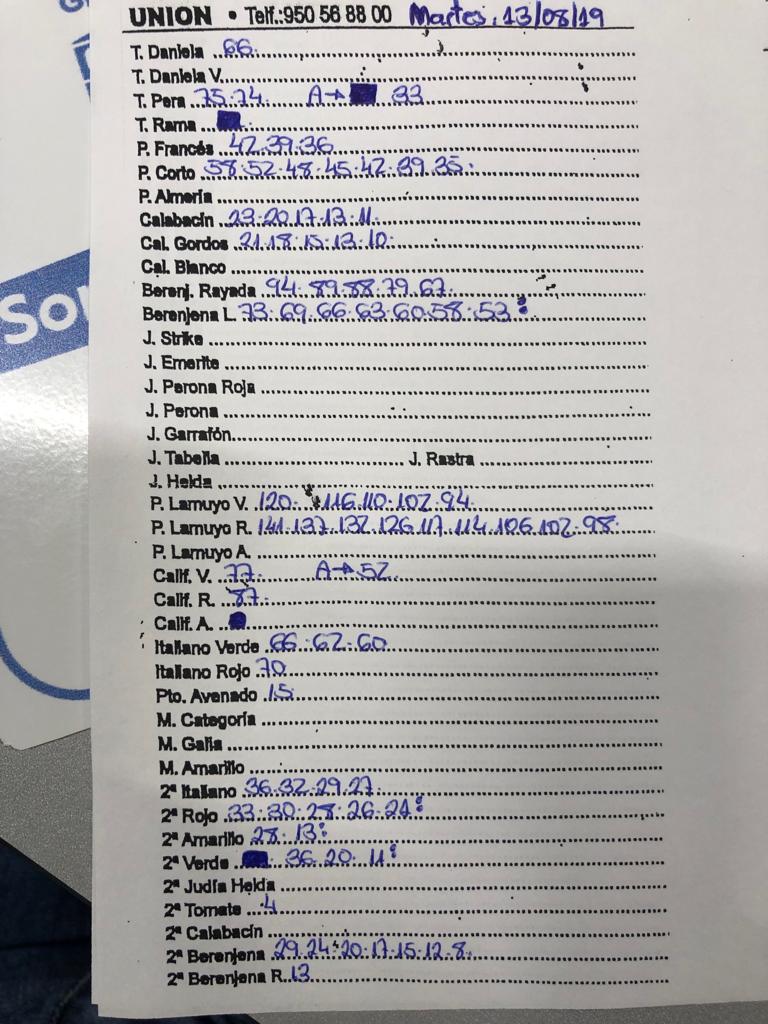 UNION • Telf.:950 56 88 00 Martes, 13/08/19
T. Daniela 66.
T. Daniela V.
T. Pera 75.74. A→ 33
T. Rama
P. Francés 42.39.36
P. Corto 58.52.48.45.42.39.35.
P. Almería
Calabacín 23.20.17.13.11.
Cal. Gordos 21.18.15.13.10.
Cal. Blanco
Berenj. Rayada 94.89.88.79.67.
Berenjena L. 73.69.66.63.60.58.53:
J. Strike
J. Emerite
J. Perona Roja
J. Perona
J. Garrafón
J. Tabella J. Rastra
J. Helda
P. Lamuyo V. 120. 116.110.102.94.
P. Lamuyo R. 141.137.132.126.117.114.106.102.98.
P. Lamuyo A.
Calif. V. 77. A→52.
Calif. R. 87.
Calif. A.
Italiano Verde 66.62.60
Italiano Rojo 70
Pto. Avenado 15
M. Categoría
M. Galia
M. Amarillo
2ª Italiano 36.32.29.27.
2ª Rojo 33.30.28.26.24:
2ª Amarillo 28.13:
2ª Verde 36.20.11:
2ª Judía Helda
2ª Tomate 4
2ª Calabacín
2ª Berenjena 29.24.20.17.15.12.8.
2ª Berenjena R. 13